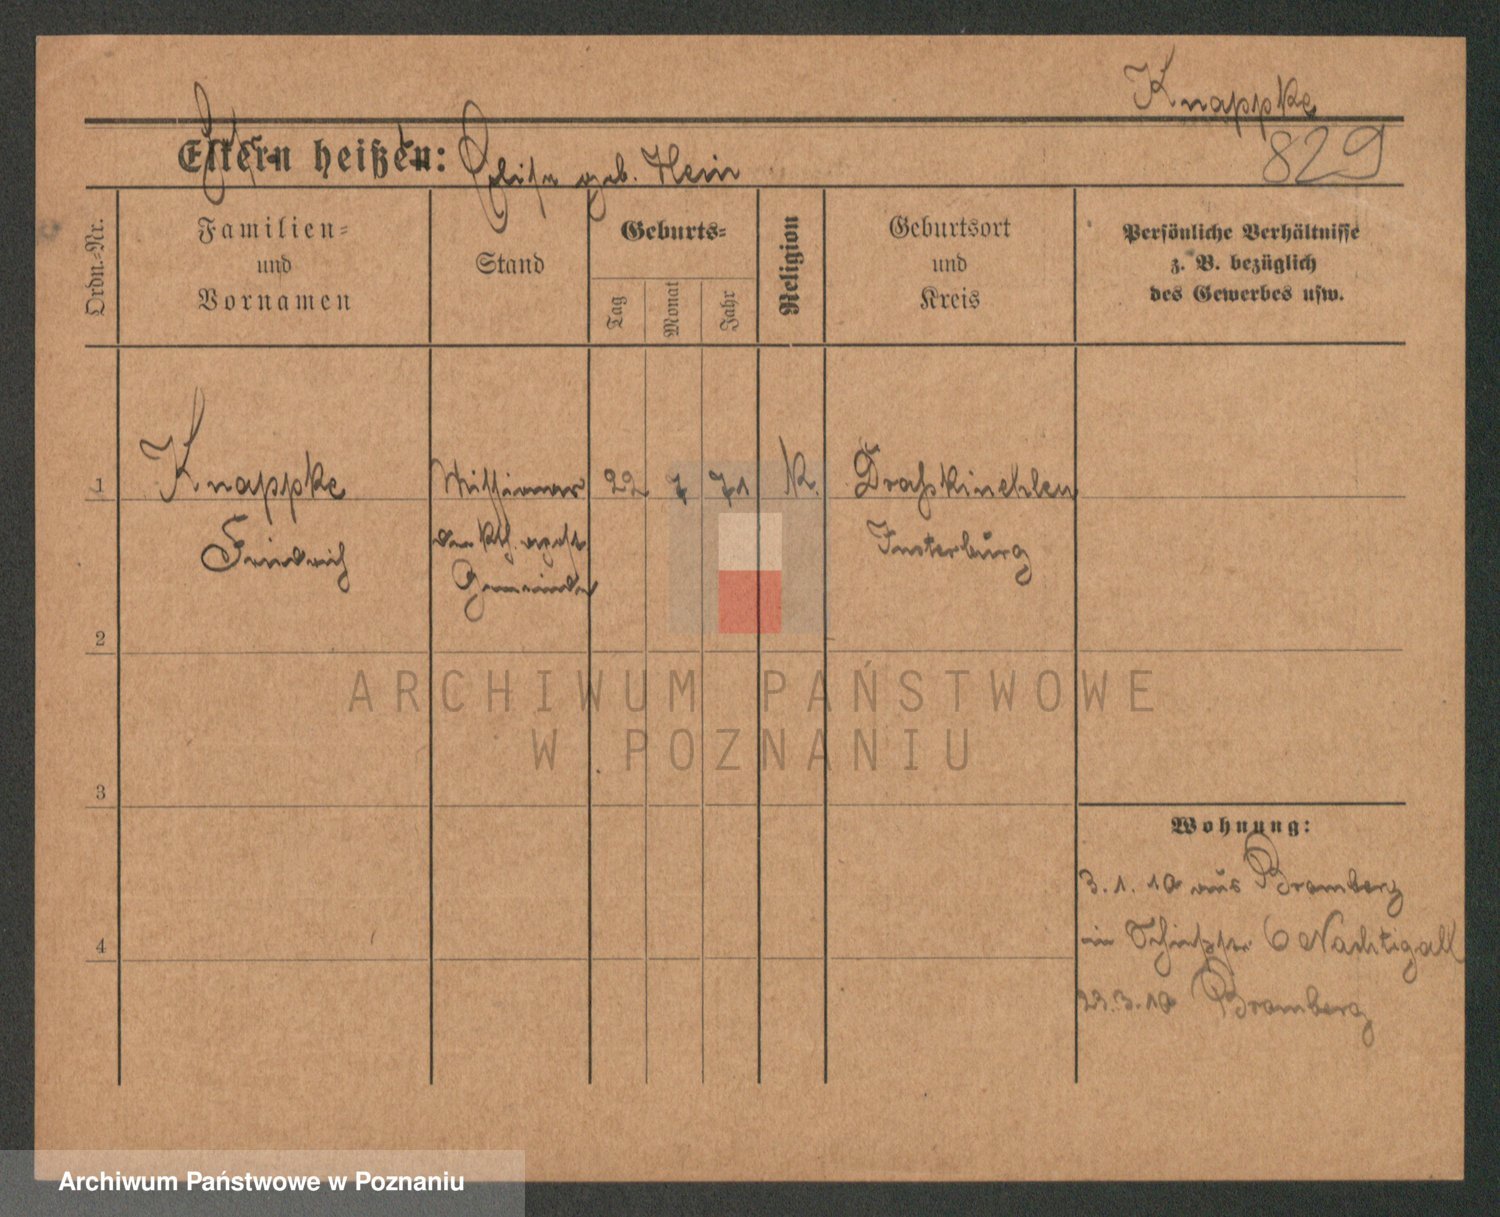 Knappke
829
Eltern heißen: geb. Hein
Ordn.-Nr.
Familien-
und
Vornamen
Stand
Geburts-
Tag
Monat
Jahr
Religion
Geburtsort
und
Kreis
Persönliche Verhältnisse
z. B. bezüglich
des Gewerbes usw.
1
Knappke
Missionar
22
7
71
K.
Draßkinehlen
Friedrich
der kth. apost.
Insterburg
Gemeinde
2
ARCHIWUM PAŃSTWOWE
W POZNANIU
3
Wohnung:
3.1.10 aus Bromberg
in 6 Nachtigall
4
23.3.10 Bromberg
Archiwum Państwowe w Poznaniu